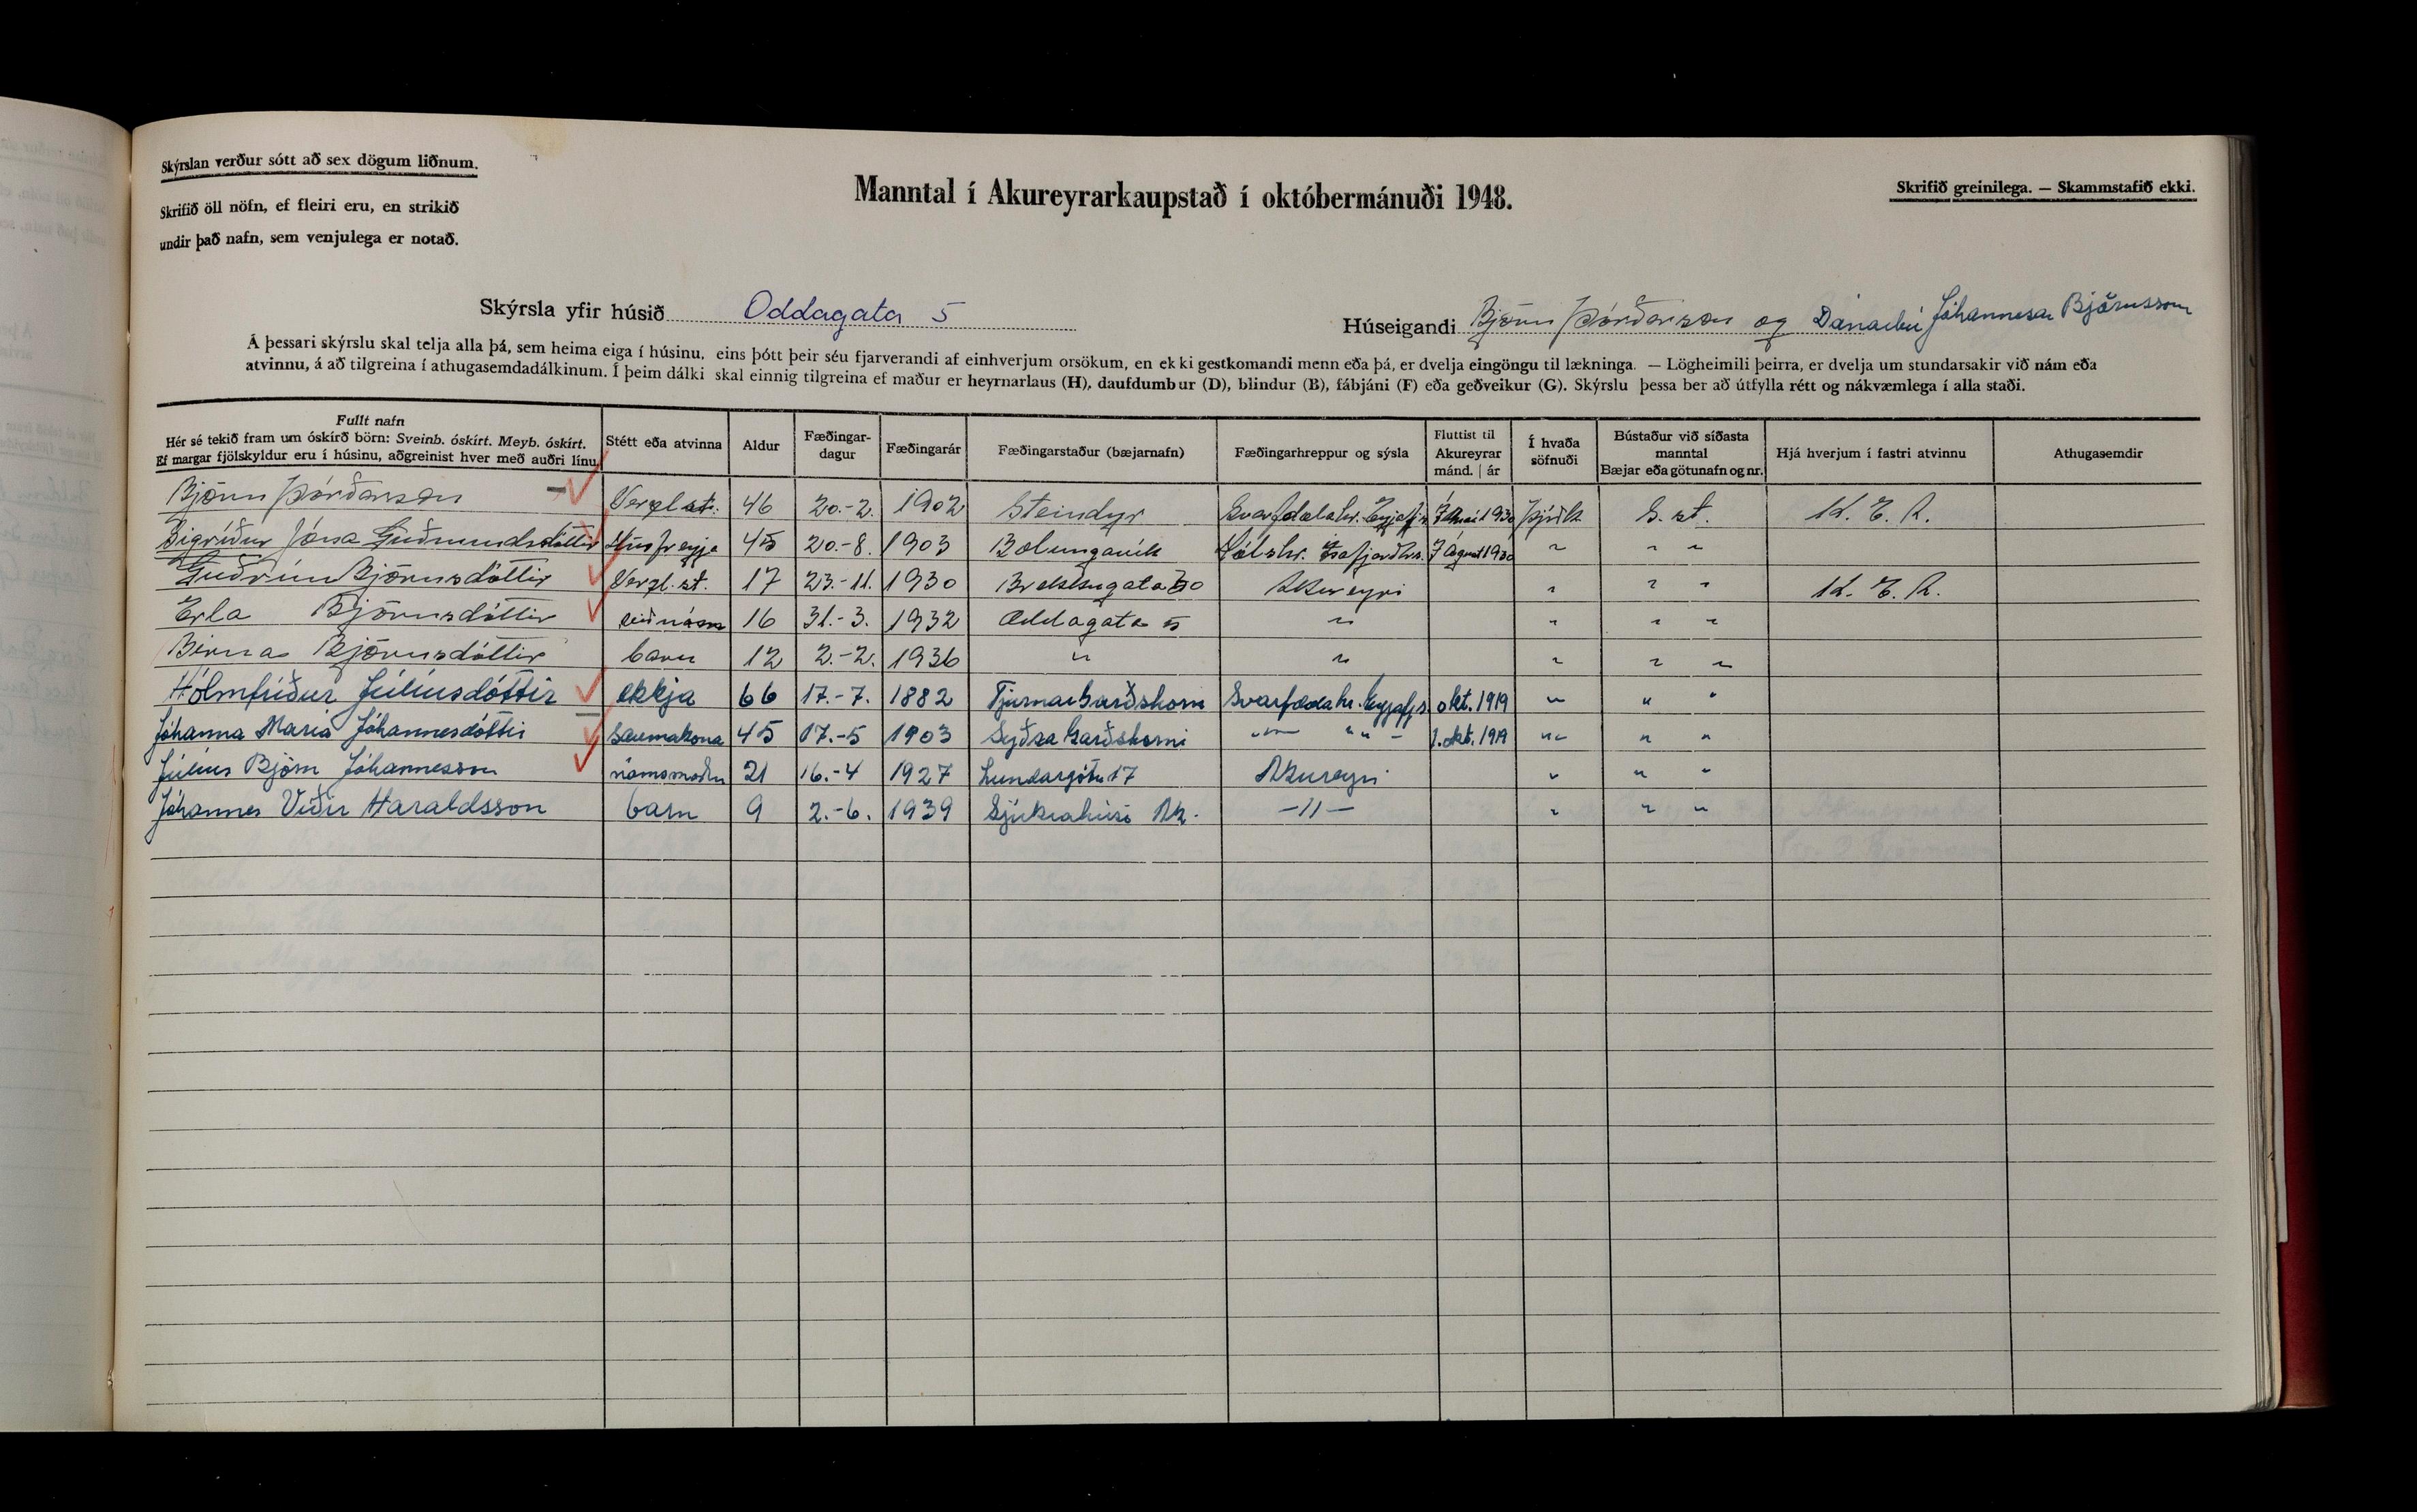 Skýrslan verður sótt að sex dögum liðnum.
Skrifið öll nöfn, ef fleiri eru, en strikið
undir það nafn, sem venjulega er notað.
Manntal í Akureyrarkaupstað í októbermánuði 1948.
Skrifið greinilega. — Skammstafið ekki.
Skýrsla yfir húsið Oddagata 5
Húseigandi Björn Þórðarson og Dánarbú Jóhannesar Björnssonar
Á þessari skýrslu skal telja alla þá, sem heima eiga í húsinu, eins þótt þeir séu fjarverandi af einhverjum orsökum, en ekki gestkomandi menn eða þá, er dvelja eingöngu til lækninga. — Lögheimili þeirra, er dvelja um stundarsakir við nám eða
atvinnu, á að tilgreina í athugasemdadálkinum. Í þeim dálki skal einnig tilgreina ef maður er heyrnarlaus (H), daufdumbur (D), blindur (B), fábjáni (F) eða geðveikur (G). Skýrslu þessa ber að útfylla rétt og nákvæmlega í alla staði.
Fullt nafn
Hér sé tekið fram um óskírð börn: Sveinb. óskírt. Meyb. óskírt.
Ef margar fjölskyldur eru í húsinu, aðgreinist hver með auðri línu
Stétt eða atvinna
Aldur
Fæðingar-
dagur
Fæðingarár
Fæðingarstaður (bæjarnafn)
Fæðingarhreppur og sýsla
Fluttist til
Akureyrar
mánd. | ár
Í hvaða
söfnuði
Bústaður við síðasta
manntal
Bæjar eða götunafn og nr.
Hjá hverjum í fastri atvinnu
Athugasemdir
Björn Þórðarson Verzl.st. 46 20.-2. 1902 Steindyr Svarfdælahr. Eyjafjs. 1930 Þjóðk. S. st. K. E. A.
Sigríður Jóna Guðmundsdóttir Húsfreyja 45 20.-8. 1903 Bolungavík Hólshr. Ísafjarðars. 7 Ágúst 1930 " " "
Guðrún Björnsdóttir Verzl.st. 17 23.-11. 1930 Brekkugata Akureyri " " " K. E. A.
Erla Björnsdóttir við nám 16 31.-3. 1932 Oddagata 5 " " " "
Birna Björnsdóttir barn 12 2.-2. 1936 " " " " "
Hólmfríður Júlíusdóttir ekkja 66 17.-7. 1882 Tjarnargarðshorn Svarfdælahr. Eyjafjs. okt. 1919 " " "
Jóhanna María Jóhannesdóttir saumakona 45 17.-5 1903 Syðra Garðshorni " " 1. okt. 1919 " " "
Júlíus Björn Jóhannesson námsmaður 21 16.-4 1927 Lundargötu 17 Akureyri " " "
Jóhannes Víðir Haraldsson barn 9 2.-6. 1939 Sjúkrahúsi Ak. —11— " " "